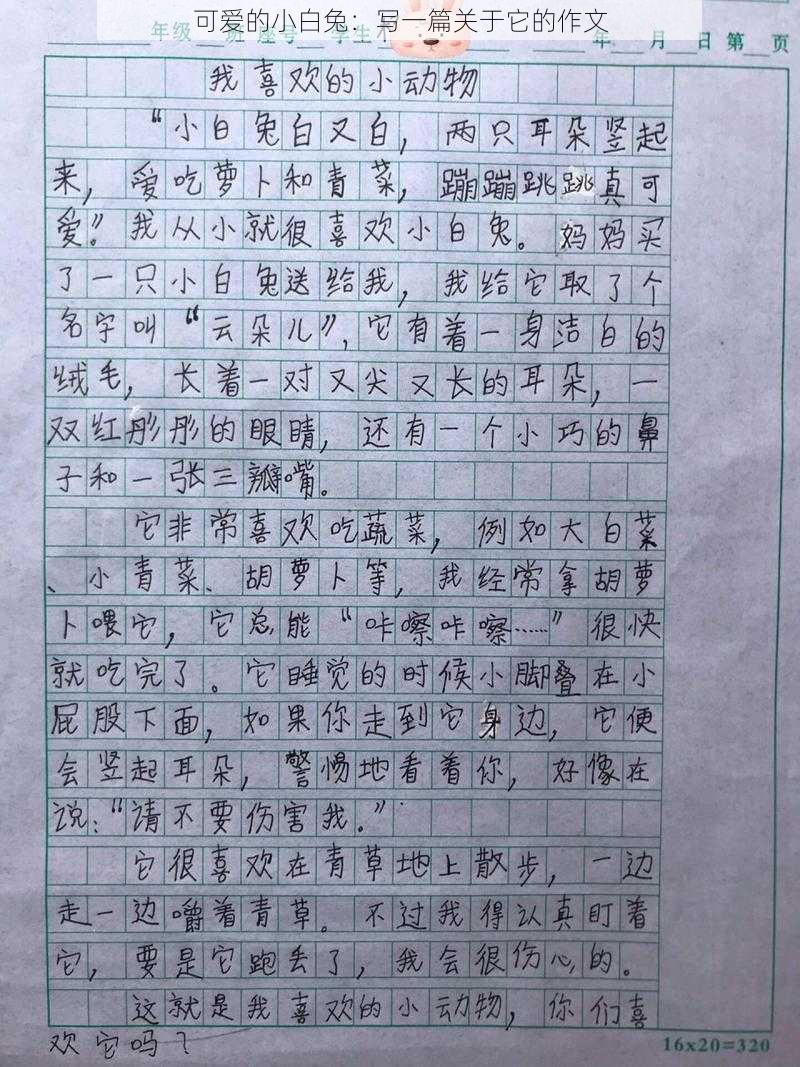 可爱的小白兔：写一篇关于它的作文
年级 班 座号 学生 年 月 日 第 页
我喜欢的小动物
“小白兔白又白，两只耳朵竖起
来，爱吃萝卜和青菜，蹦蹦跳跳真可
爱”。我从小就很喜欢小白兔。妈妈买
了一只小白兔送给我，我给它取了个
名字叫“云朵儿”，它有着一身洁白的
绒毛，长着一对又尖又长的耳朵，一
双红彤彤的眼睛，还有一个小巧的鼻
子和一张三瓣嘴。
它非常喜欢吃蔬菜，例如大白菜
、小青菜、胡萝卜等，我经常拿胡萝
卜喂它，它总能“咔嚓咔嚓……”很快
就吃完了。它睡觉的时候小脚叠在小
屁股下面，如果你走到它身边，它便
会竖起耳朵，警惕地看着你，好像在
说：“请不要伤害我。”
它很喜欢在青草地上散步，一边
走一边嚼着青草。不过我得认真盯着
它，要是它跑丢了，我会很伤心的。
这就是我喜欢的小动物，你们喜
欢它吗？
16x20=320